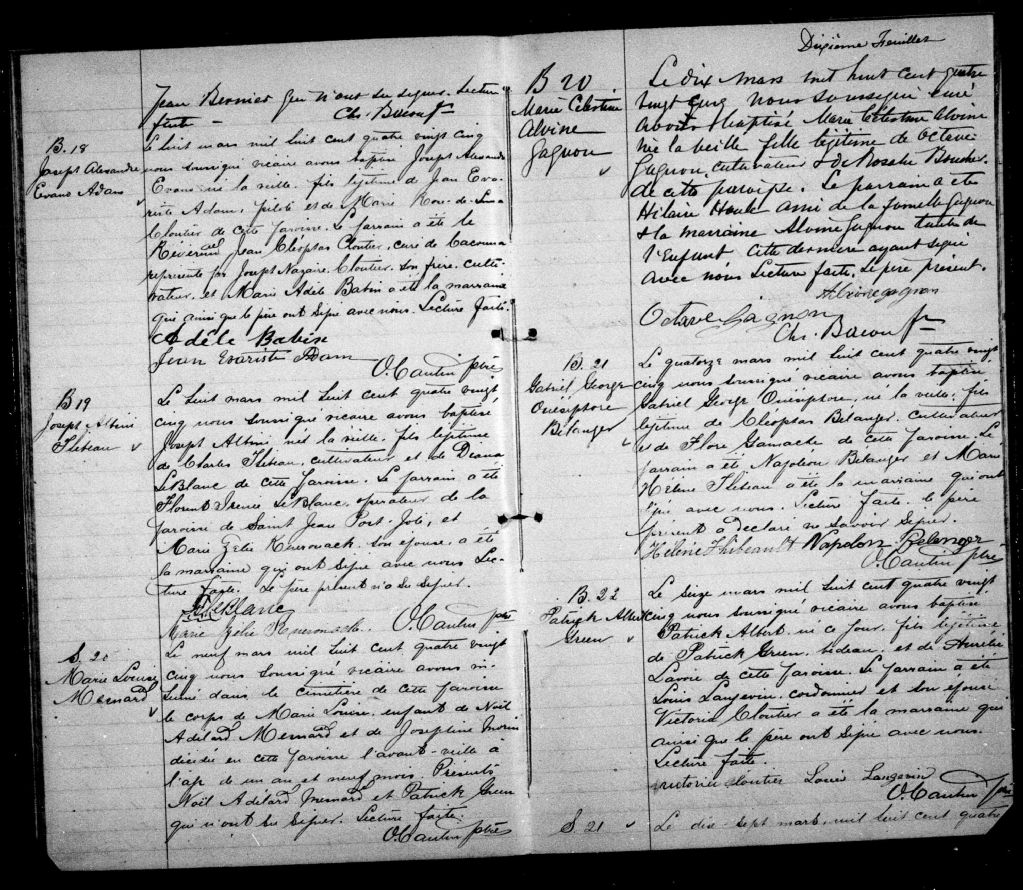 Jean Bernier qui n'ont su signer. Lecture
faite —
Chs. Bacon Ptr
B. 18
Joseph Alexandre
Evano Adam
Le huit mars mil huit cent quatre vingt cinq
nous soussigné vicaire avons baptisé Joseph Alexandre
Evano né la veille, fils légitime de Jean Eva-
riste Adam, pilote et de Marie Rose-de-Lima
Cloutier de cette paroisse. Le parrain a été le
Révérend Jean Cléophas Cloutier, curé de Cacouna
représenté par Joseph Nazaire Cloutier, son frère, culti-
vateur, et Marie Adèle Babin a été la marraine
qui ainsi que le père ont signé avec nous. Lecture faite.
Adèle Babin
Jean Evariste Adam
O. Cantin ptre
B 19
Joseph Albini
Thibeau
Le huit mars mil huit cent quatre vingt
cinq nous soussigné vicaire avons baptisé
Joseph Albini né la veille, fils légitime
de Charles Thibeau, cultivateur et de Diana
LeBlanc de cette paroisse. Le parrain a été
Florent Irénée LeBlanc, opérateur de la
paroisse de Saint Jean Port-Joli, et
Marie Zélie Kerrouack, son épouse, a été
la marraine qui ont signé avec nous Lec-
ture faite. Le père présent n'a su signer.
LeBlanc
Marie Zélie Kerouack. O. Cantin ptre
S. 20
Marie Louise
Mesnard
Le neuf mars mil huit cent quatre vingt
cinq nous soussigné vicaire avons in-
humé dans le cimetière de cette paroisse
le corps de Marie Louise, enfant de Noël
Adélard Mesnard et de Joséphine Morin
décédée en cette paroisse l'avant-veille à
l'âge de un an et neuf mois. Présents
Noël Adélard Mesnard et Patrick Green
qui n'ont su signer. Lecture faite.
O. Cantin ptre
Dixième Feuillet
B 20
Marie Célestine
Alvine
Gagnon
Le dix mars mil huit cent quatre
vingt cinq nous soussigné curé
avons baptisé Marie Célestine Alvine
née la veille fille légitime de Octave
Gagnon, cultivateur & de Rosalie Boucher
de cette paroisse. Le parrain a été
Hilaire Houle ami de la famille Gagnon
& la marraine Alvine Gagnon tante de
l'Enfant, cette dernière ayant signé
avec nous Lecture faite, le père présent.
Alvine gagnon
Octave Gagnon
Chs. Bacon Ptr
B. 21
Gabriel George
Onésiphore
Bélanger
Le quatorze mars mil huit cent quatre vingt
cinq nous soussigné vicaire avons baptisé
Gabriel George Onésiphore, né la veille, fils
légitime de Cléophas Bélanger, cultivateur
et de Flore Gamache de cette paroisse. Le
parrain a été Napoléon Bélanger et Marie
Hélène Thibeau a été la marraine qui ont
signé avec nous. Lecture faite. le père
présent a déclaré ne savoir signer.
Hélène Thibeault Napoléon Bélanger
O. Cantin ptre
B. 22
Patrick Albert
Green
Le seize mars mil huit cent quatre vingt
cinq nous soussigné vicaire avons baptisé
Patrick Albert, né ce jour, fils légitime
de Patrick Green, bedeau, et de Aurélie
Lavoie de cette paroisse. Le parrain a été
Louis Langevin, cordonnier et son épouse
Victoria Cloutier a été la marraine qui
ainsi que le père ont signé avec nous.
Lecture faite.
Victoria Cloutier Louis Langevin
O. Cantin ptre
S. 21
Le dix-sept mars mil huit cent quatre